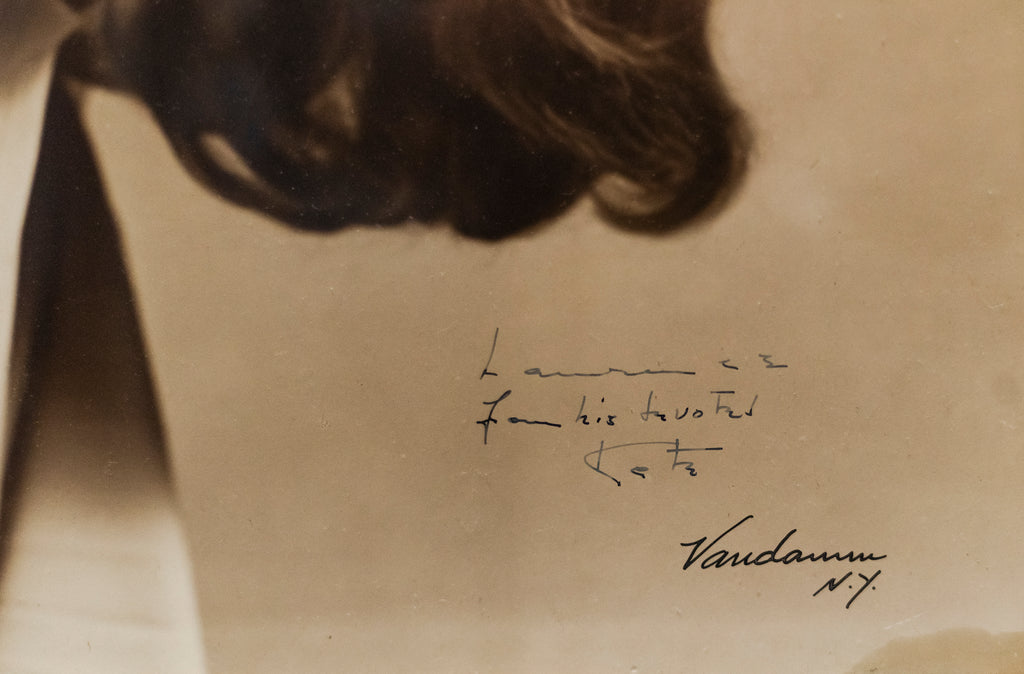 Laurence
from his devoted
Kate
Vandamm
N.Y.